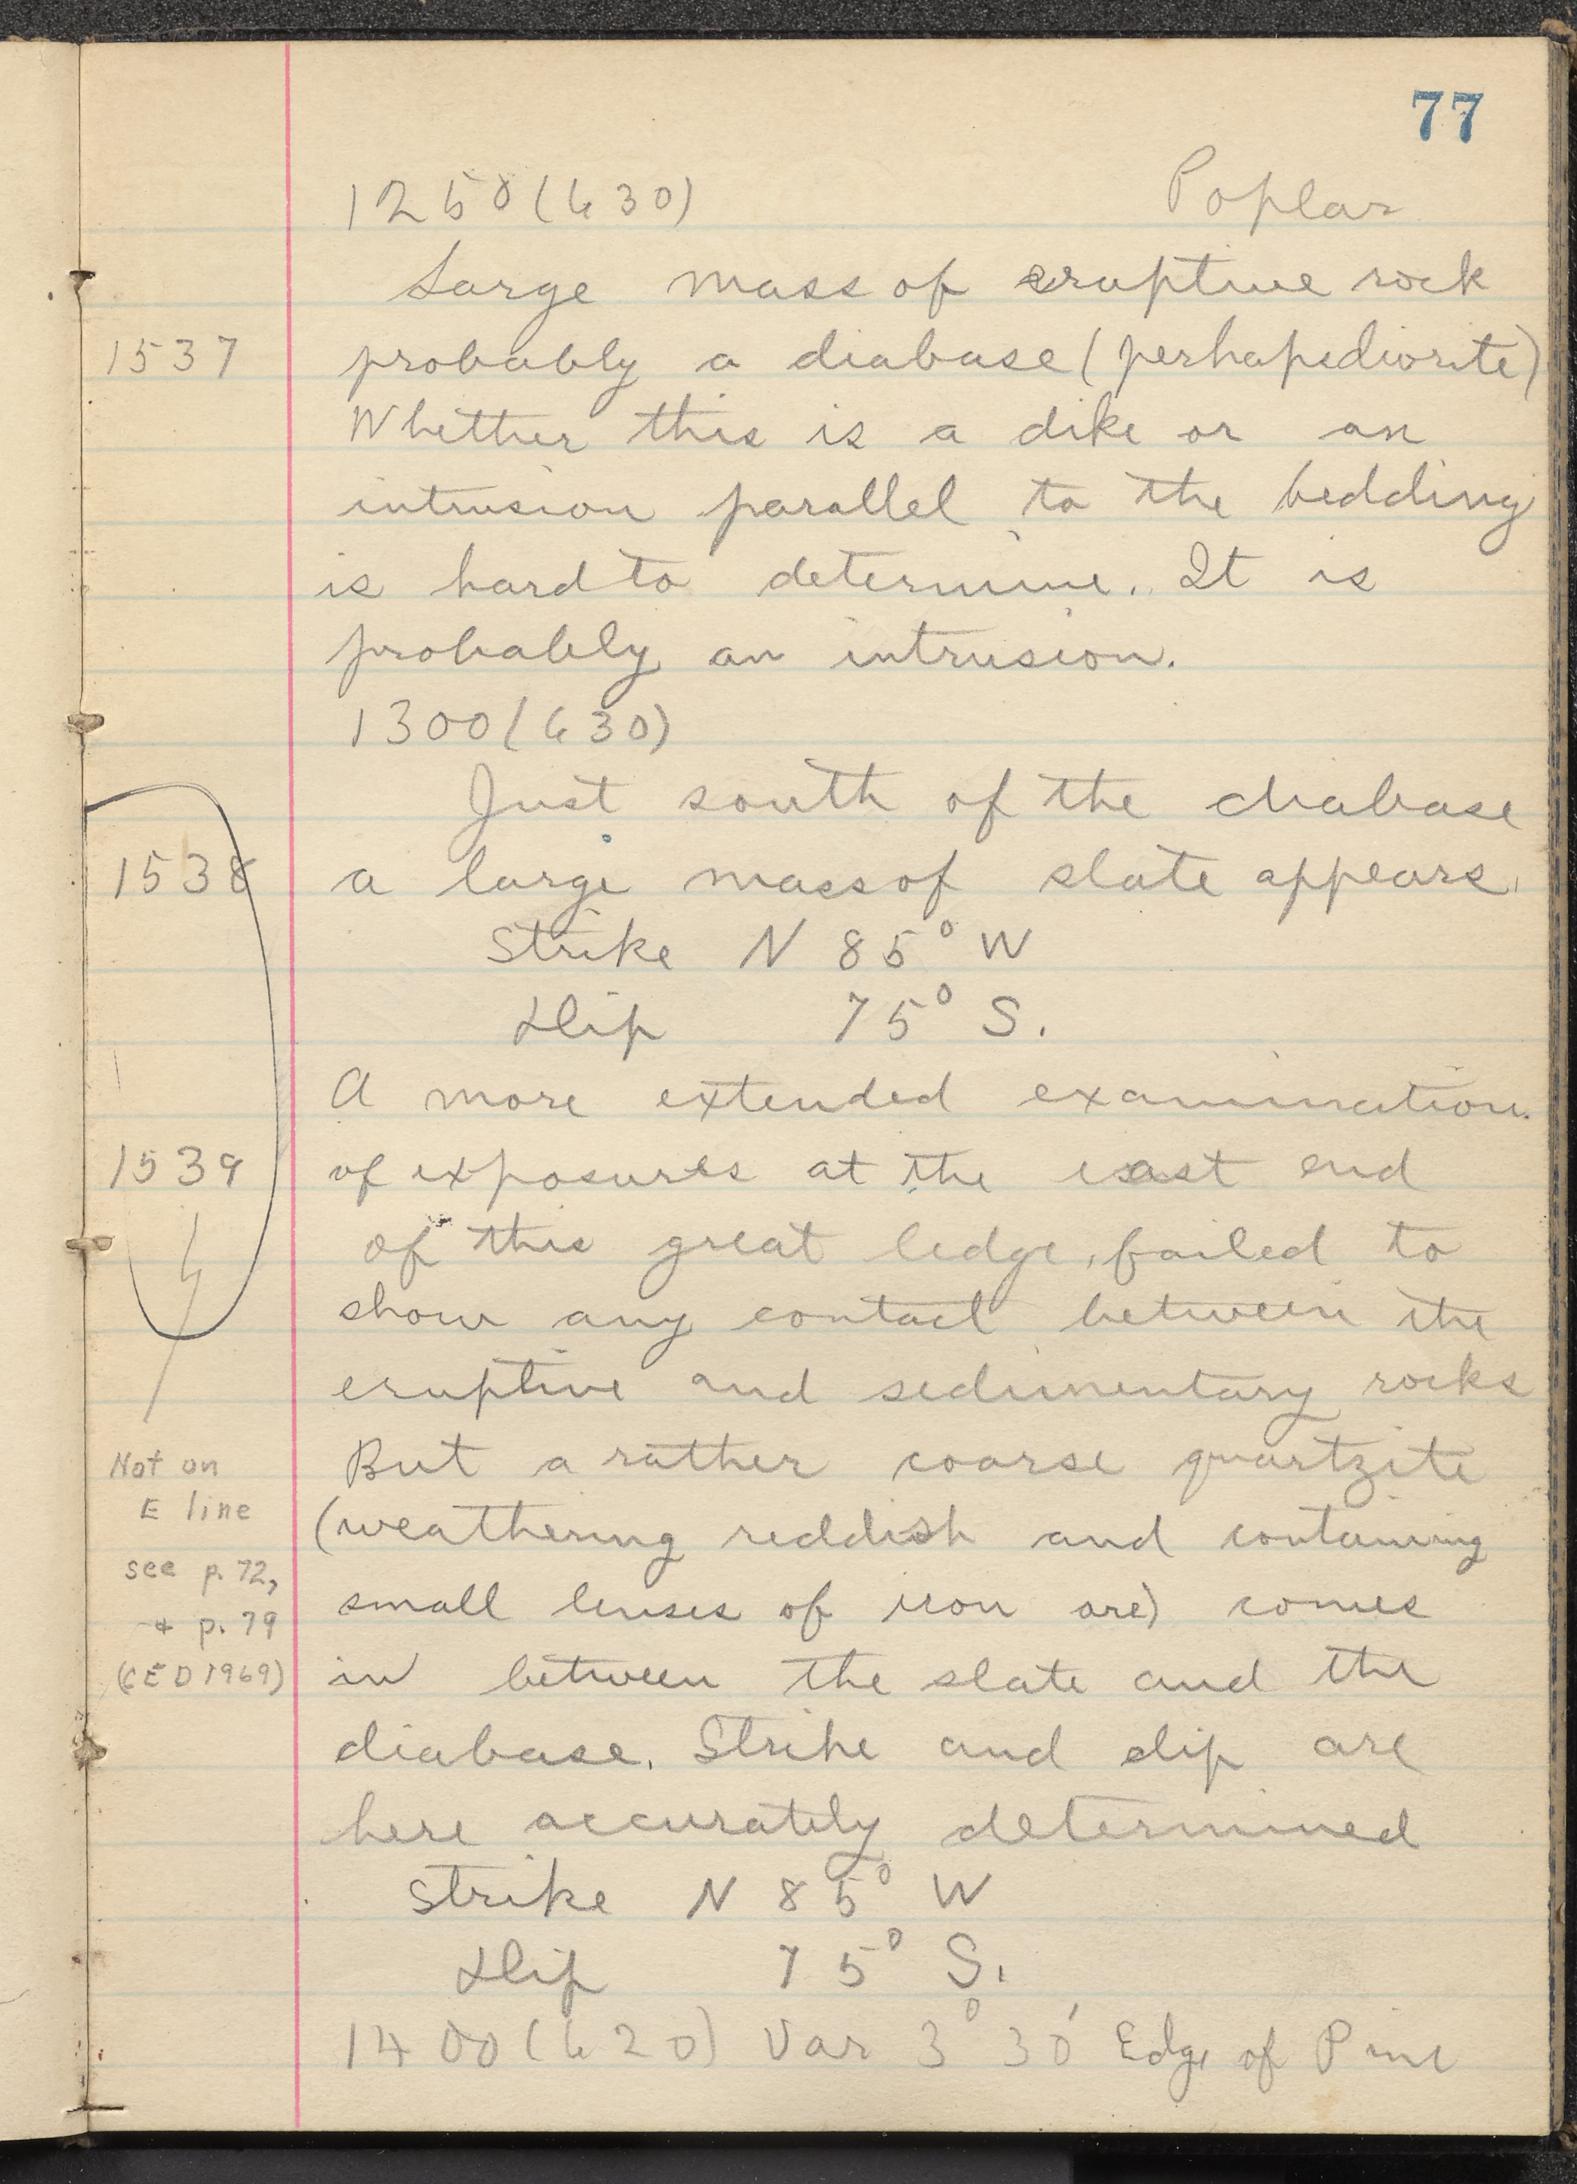 77
1250 (630) Poplar
Large mass of eruptive rock
1537 probably a diabase (perhaps diorite)
Whether this is a dike or an
intrusion parallel to the bedding
is hard to determine. It is
probably an intrusion.
1300 (630)
Just south of the diabase
1538 a large mass of slate appears.
Strike N 85° W
Dip 75° S.
A more extended examination
1539 of exposures at the east end
of this great ledge, failed to
show any contact between the
eruptive and sedimentary rocks
But a rather coarse quartzite
(weathering reddish and containing
small lenses of iron ore) comes
in between the slate and the
diabase. Strike and dip are
here accurately determined
Strike N 85° W
Dip 75° S.
1400 (620) Var 3° 30' Edge of Pine
Not on
E line
see p. 72,
+ p. 79
(CED 1969)